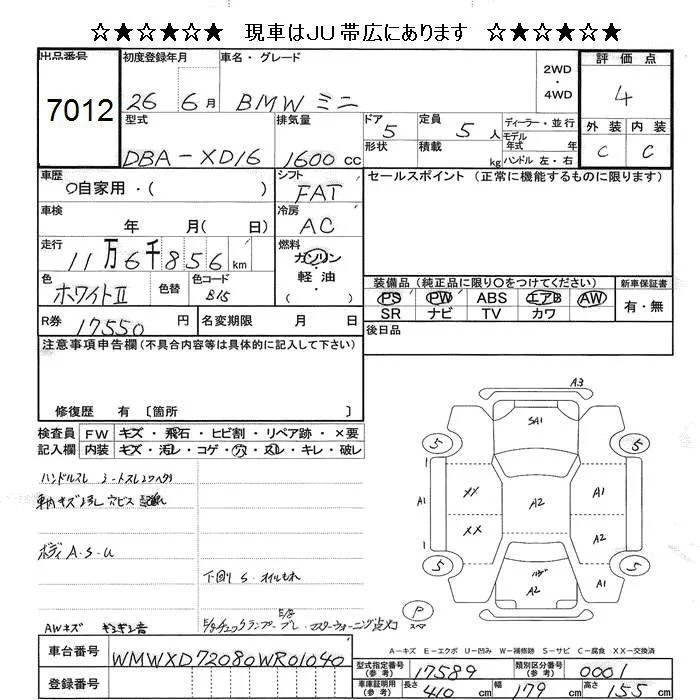 ☆★☆★☆★ 現車はJU帯広にあります ☆★☆★☆★
出品番号 7012
初度登録年月 26 6月
車名・グレード BMW ミニ
2WD・4WD
評価点 4
外装 C 内装 C
型式 DBA-XD16
排気量 1600cc
ドア 5
定員 5人
形状
積載 kg
ディーラー・並行
モデル年式 年
ハンドル 左・右
車歴 自家用・( )
シフト FAT
セールスポイント (正常に機能するものに限ります)
車検 年 月( 日)
冷房 AC
走行 11万6千856km
燃料 ガソリン・軽油 ( )
色 ホワイトⅡ
色替
色コード B15
装備品 (純正品に限り○をつけてください)
PS PW ABS エアB AW
SR ナビ TV カワ
新車保証書 有・無
R券 17550円
名変期限 月 日
後日品
注意事項申告欄(不具合内容等は具体的に記入して下さい)
修復歴 有 〔箇所 〕
検査員記入欄
FW キズ・飛石・ヒビ割・リペア跡・×要
内装 キズ・汚レ・コゲ・穴・スレ・キレ・破レ
ハンドルスレ シートスレ
車内キズ 汚レ 穴ビス
ボディ A.S.U
下回り S. オイルもれ
AWキズ
A3
SA1
5 5
A1 XX A2 A1 A1
XX A2
5 5
A2 A1
P スペア
A-キズ E-エクボ U-凹み W-補修跡 S-サビ C-腐食 XX-交換済
車台番号 WMWXD72080WR01040
登録番号
型式指定番号(参考) 17589
類別区分番号(参考) 0001
車庫証明用(参考) 長さ 410cm 幅 179cm 高さ 155cm